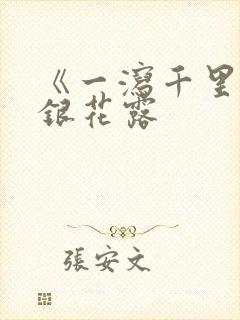 《一瀉千里
銀花露
張安文